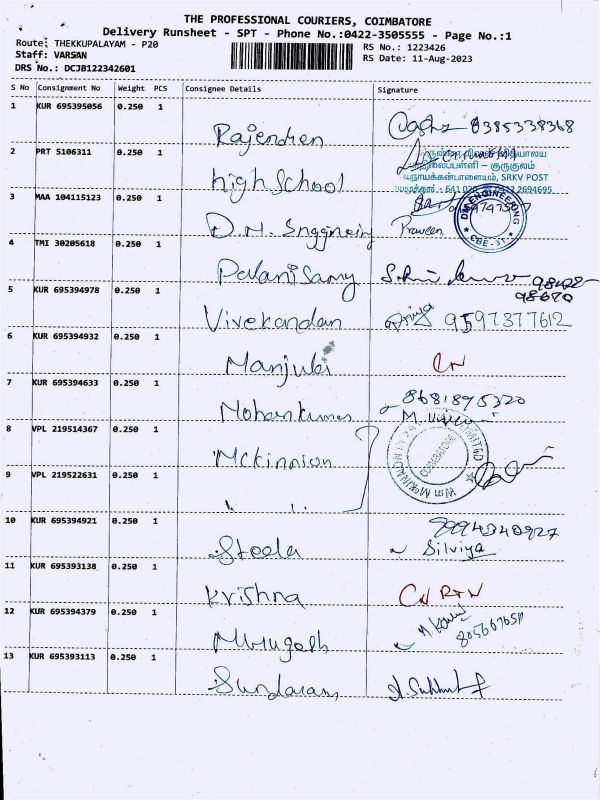 THE PROFESSIONAL COURIERS, COIMBATORE
Delivery Runsheet - SPT - Phone No.:0422-3505555 - Page No.:1
Route: THEKKUPALAYAM - P20
Staff: VARSAN
DRS No.: DCJB122342601
RS No.: 1223426
RS Date: 11-Aug-2023
S No Consignment No Weight PCS Consignee Details Signature
1 KUR 695395056 0.250 1
Rajendren
2 PRT 5106311 0.250 1
high School
3 MAA 104115123 0.250 1
D.M.
Praveen
DM ENGINEERING
CBE-31
4 TMI 30205618 0.250 1
Palanisamy
5 KUR 695394978 0.250 1
Vivekandan
Priya 9597377612
6 KUR 695394932 0.250 1
Manjula
CN
7 KUR 695394633 0.250 1
Mohankumar
8681895320
8 VPL 219514367 0.250 1
Mckinnion
COIMBATORE
9 VPL 219522631 0.250 1
10 KUR 695394921 0.250 1
Steela
Silviya
11 KUR 695393138 0.250 1
Krishna
CN RTN
12 KUR 695394379 0.250 1
Murugesh
13 KUR 695393113 0.250 1
Sundaram